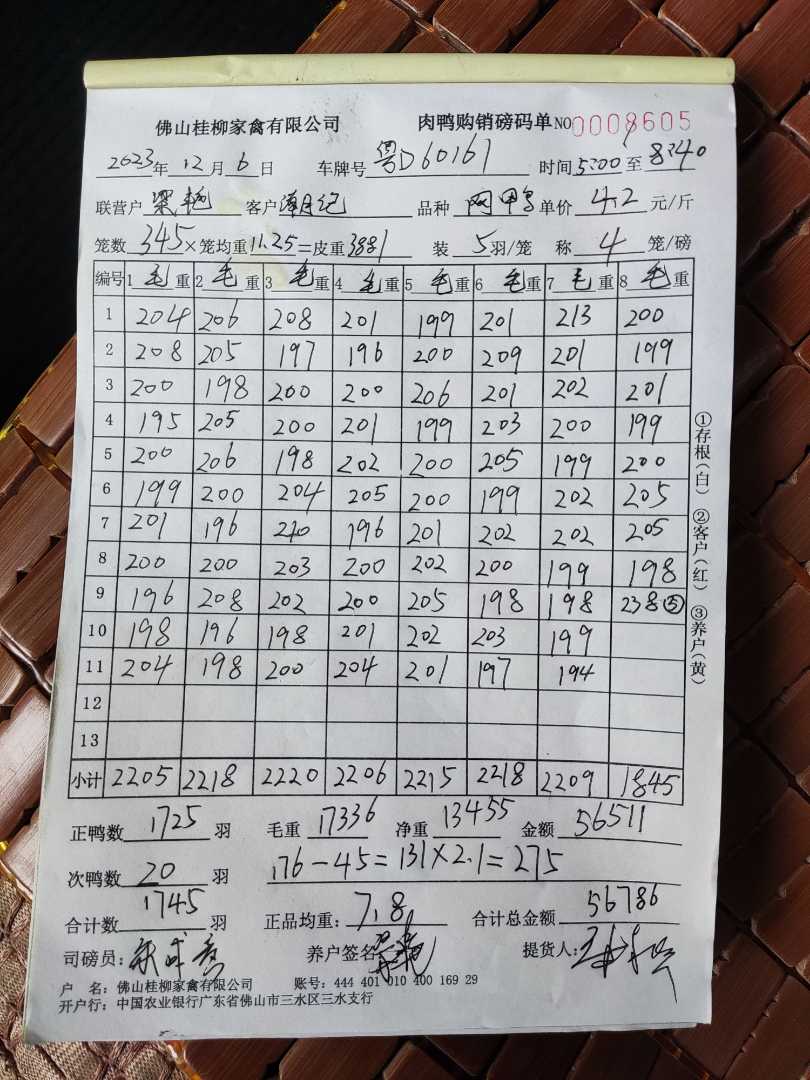 佛山桂柳家禽有限公司 肉鸭购销磅码单 NO 0008605
2023年12月6日 车牌号 粤D60161 时间 5:00至8:40
联营户 客户 品种 单价 4.2 元/斤
笼数 345×笼均重 11.25=皮重 3881 装 5 羽/笼 称 4 笼/磅
编号 1 毛 重 2 毛 重 3 毛 重 4 毛 重 5 毛 重 6 毛 重 7 毛 重 8 毛 重
1 204 206 208 201 199 201 213 200
2 208 205 197 196 200 209 201 199
3 200 198 200 200 206 201 202 201
4 195 205 200 201 199 203 200 199
5 200 206 198 202 200 205 199 200
6 199 200 204 205 200 199 202 205
7 201 196 210 196 201 202 202 205
8 200 200 203 200 202 200 199 198
9 196 208 202 200 205 198 198 238⑤
10 198 196 198 201 202 203 199
11 204 198 200 204 201 197 194
12
13
小计 2205 2218 2220 2206 2215 2218 2209 1845
正鸭数 1725 羽 毛重 17336 净重 13455 金额 56511
次鸭数 20 羽 176-45=131×2.1=275
合计数 1745 羽 正品均重: 7.8 合计总金额 56786
司磅员: 养户签名 提货人:
户 名: 佛山桂柳家禽有限公司 账号: 444 401 010 400 169 29
开户行: 中国农业银行广东省佛山市三水区三水支行
①存根(白) ②客户(红) ③养户(黄)